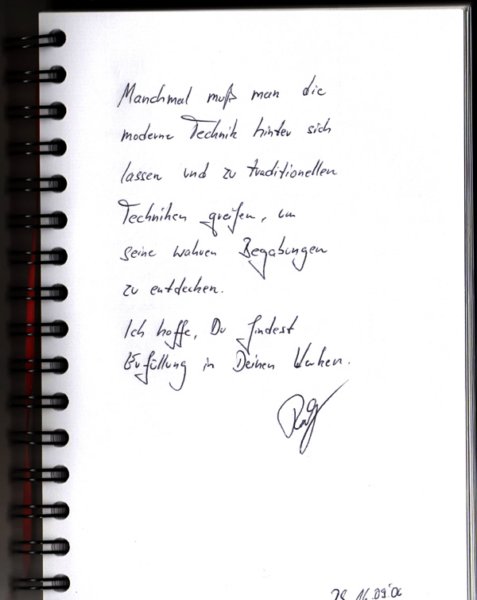 Manchmal muß man die
moderne Technik hinter sich
lassen und zu traditionellen
Techniken greifen, um
seine wahren Begabungen
zu entdecken.
Ich hoffe, Du findest
Erfüllung in Deinen Werken.